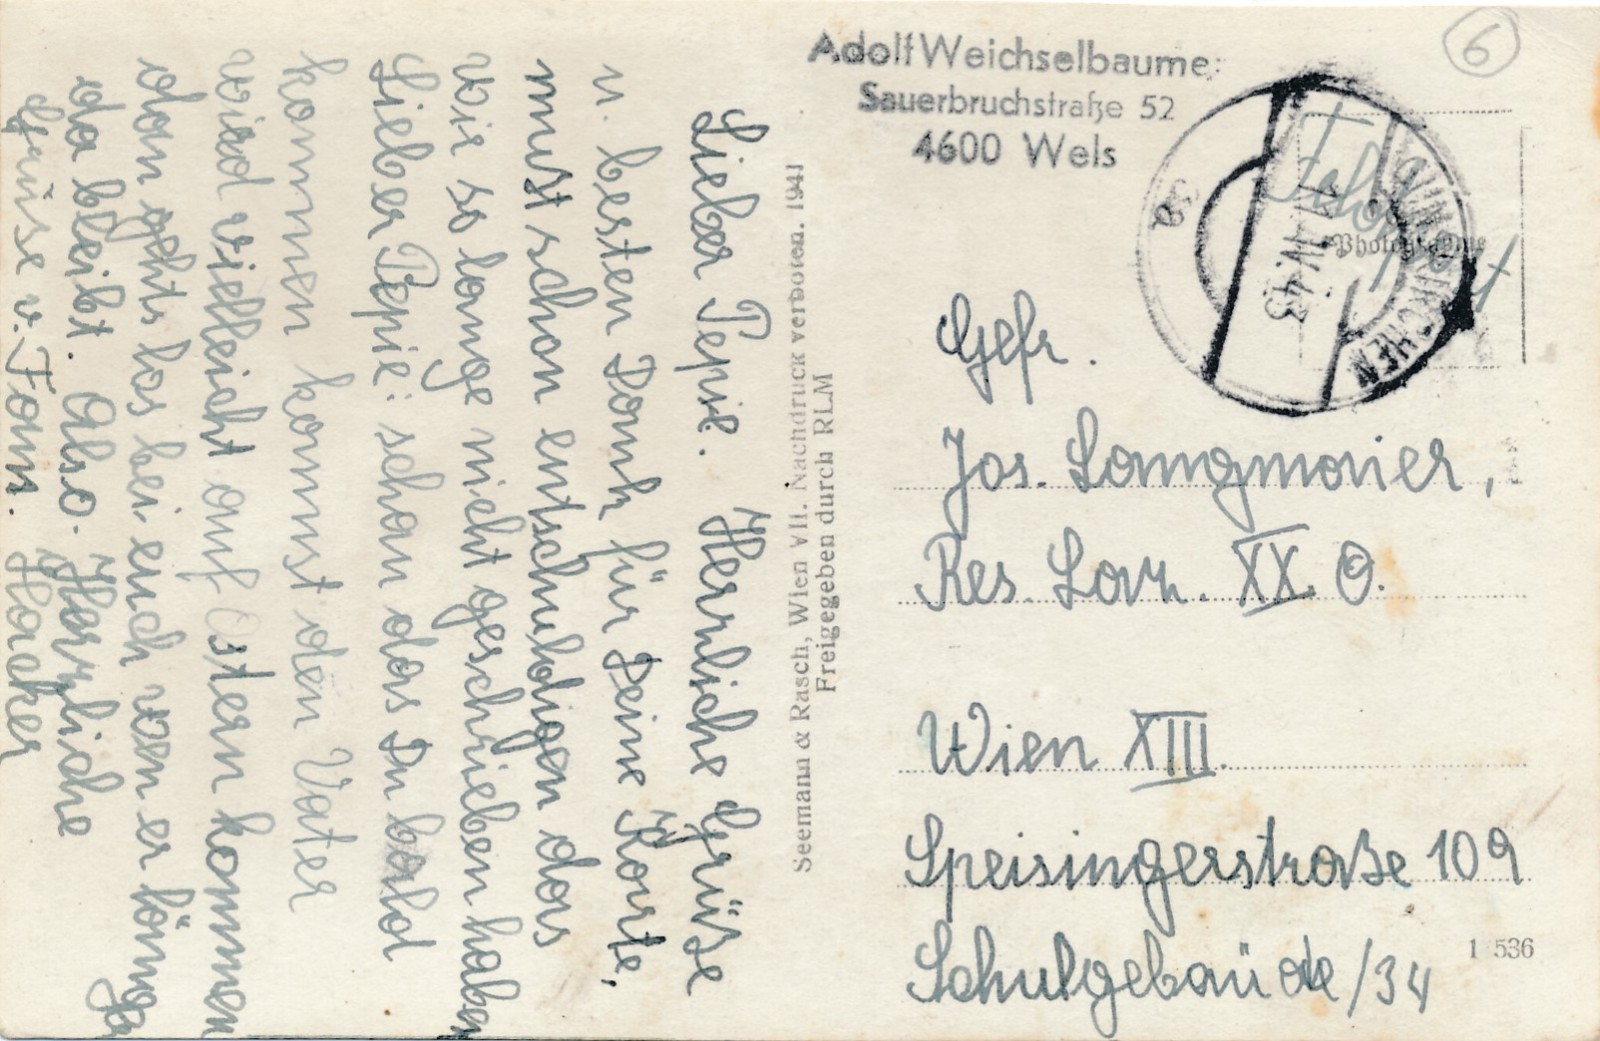 Lieber Pepie. Herrliche Grüße
u. besten Dank für Deine Karte.
must schon entschuldigen das
wir so lange nicht geschrieben haben
Lieber Pepie: schon das Du bald
kommen kannst den Vater
wird vielleicht auf Ostern kommen
dan gehts los bei euch wen er länger
da bleibt. Also. Herzliche
Grüse v. Fam. Hacker
Seemann & Rasch, Wien VII. Nachdruck verboten. 1941
Freigegeben durch RLM
Adolf Weichselbaumer
Sauerbruchstraße 52
4600 Wels
6
Feldpost
Photographie
IV. 43
Gefr.
Jos. Langmaier,
Res. Laz. XX. O.
Wien XIII.
Speisingerstraße 109
Schulgebäude /34
1 536